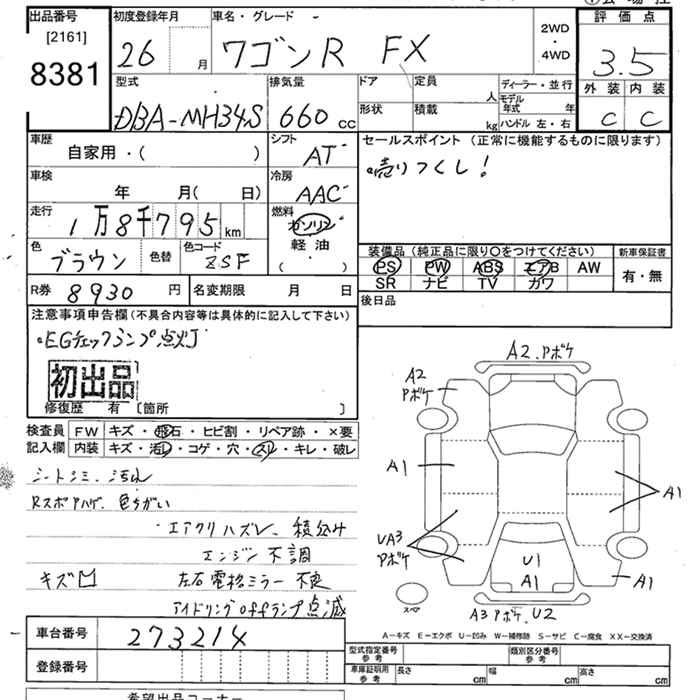 出品番号 初度登録年月 車名・グレード 評価点
[2161]
8381
26 月 ワゴンR FX 2WD・4WD 3.5
外装 内装
C C
型式 排気量 ドア 定員 人 ディーラー・並行
DBA-MH34S 660 cc 形状 積載 kg モデル年式 年
ハンドル 左・右
車歴 シフト セールスポイント (正常に機能するものに限ります)
自家用・( ) AT 売りつくし!
車検 冷房
年 月( 日) AAC
走行 燃料
1万8千795 km ガソリン
軽油
( )
色 色替 色コード
ブラウン ZSF
装備品(純正品に限り○をつけてください) 新車保証書
PS PW ABS エアB AW 有・無
SR ナビ TV カワ
R券 8930 円 名変期限 月 日 後日品
注意事項申告欄(不具合内容等は具体的に記入して下さい)
EGチェックランプ点灯
初出品
修復歴 有 〔箇所 〕
検査員記入欄 FW キズ・飛石・ヒビ割・リペア跡・×要
内装 キズ・汚れ・コゲ・穴・スレ・キレ・破レ
シートシミ、汚れ
Rスポアハゲ、色ちがい
エアクリハズレ、積込み
エンジン不調
キズ 左右電格ミラー不良
アイドリングOffランプ点滅
A2.アポケ
A2
アポケ
A1
A1
UA3
アポケ
U1
A1
A1
スペア
A3アポケ、U2
A−キズ E−エクボ U−凹み W−補修跡 S−サビ C−腐食 XX−交換済
車台番号 273214
登録番号
型式指定番号 参考 類別区分番号 参考
車庫証明用 参考 長さ cm 幅 cm 高さ cm
希望出品コーナー